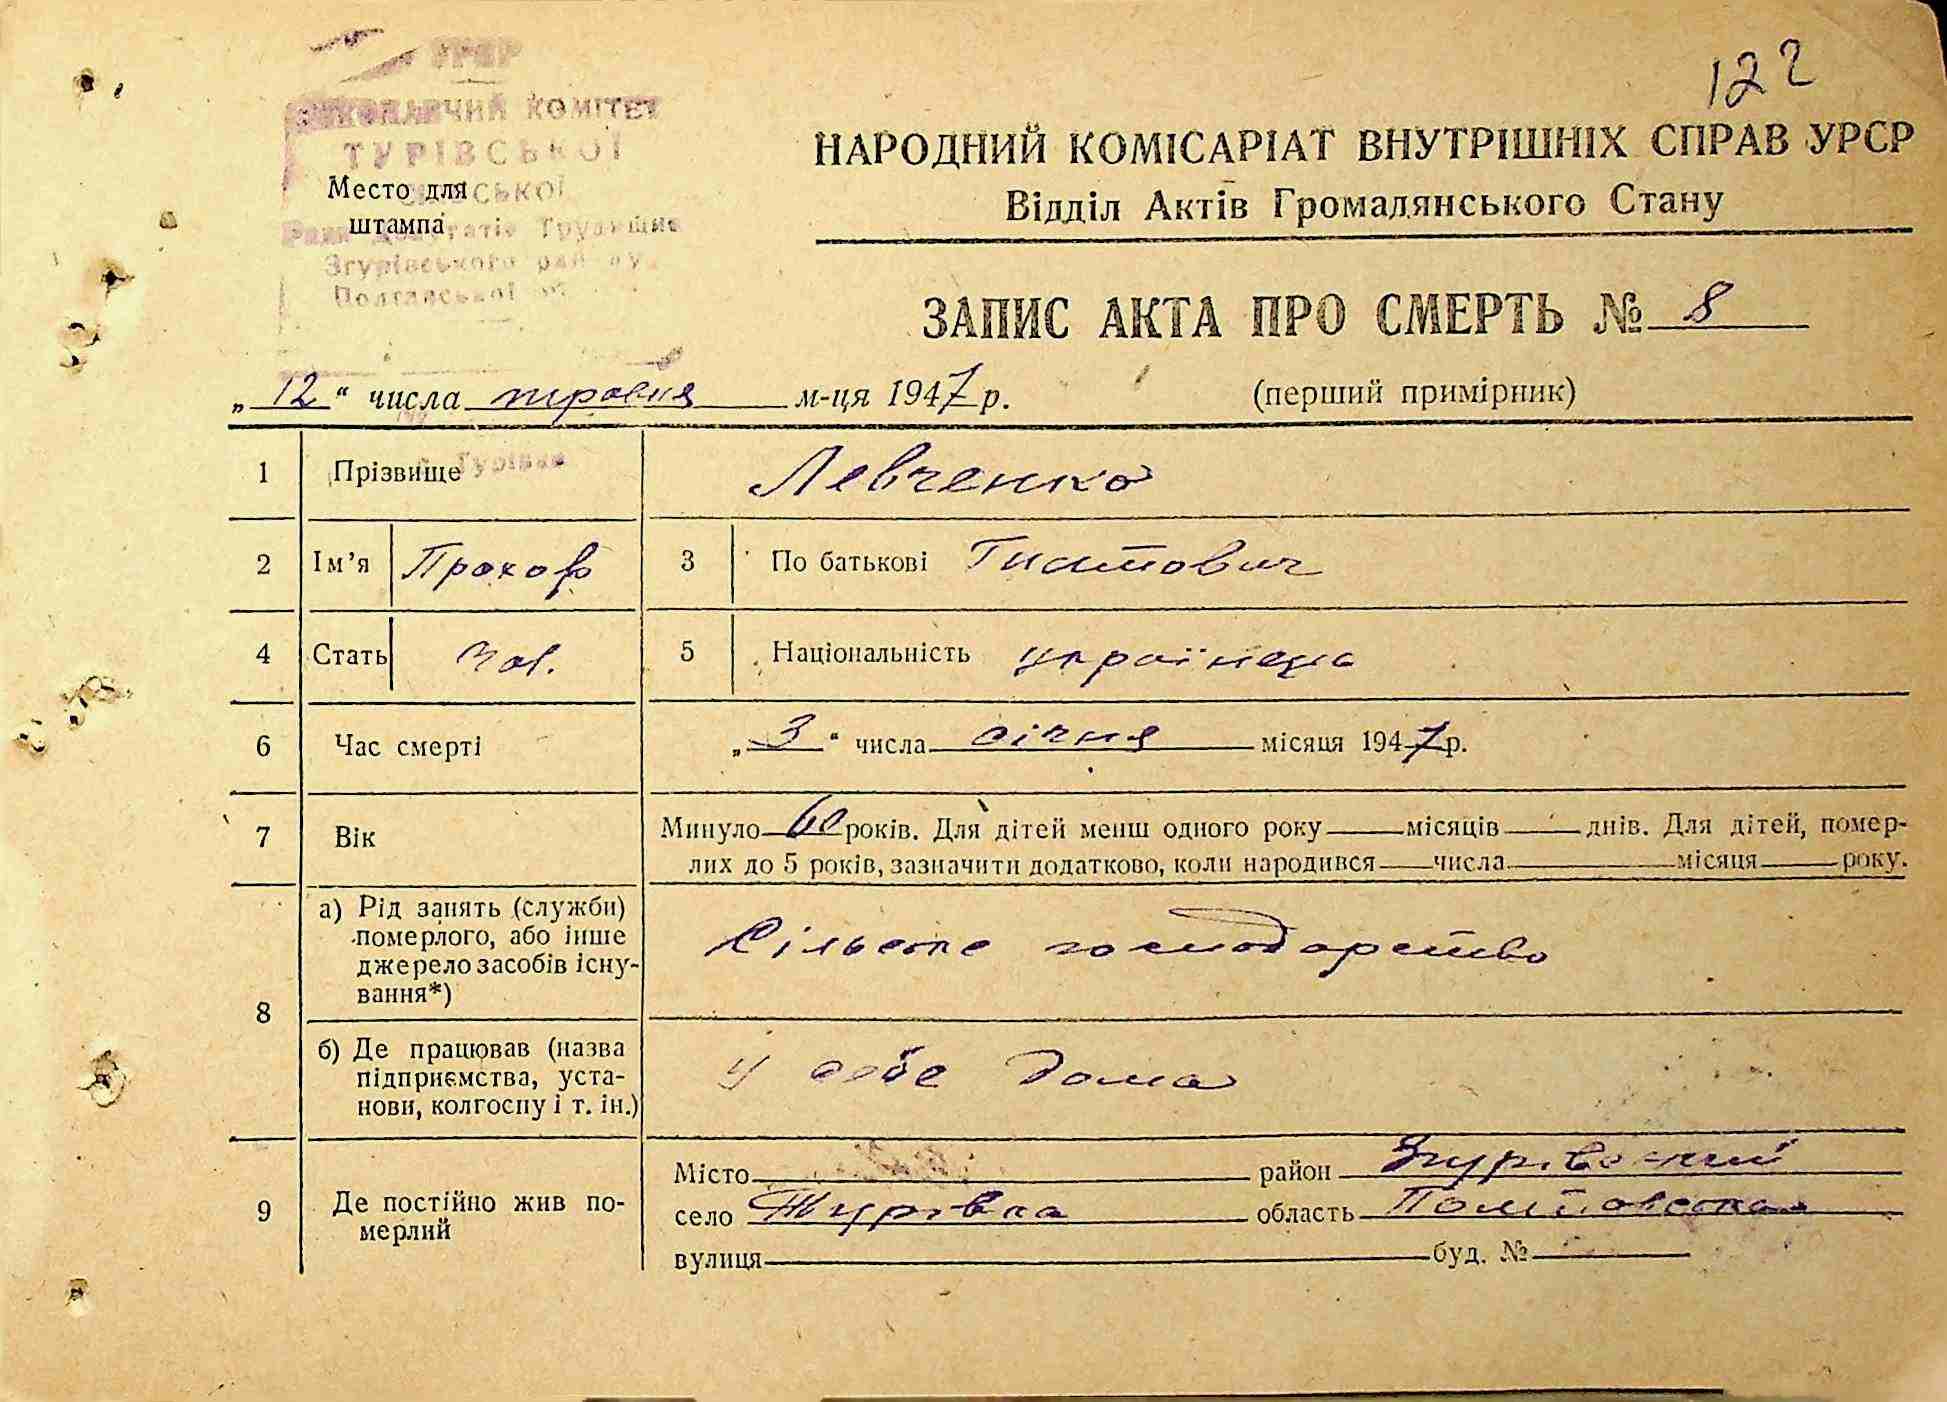 122
УРСР
ВИКОНАВЧИЙ КОМІТЕТ
ТУРІВСЬКОЇ
СІЛЬСЬКОЇ
Ради Депутатів Трудящих
Згурівського району
Полтавської
Место для
штампа
НАРОДНИЙ КОМІСАРІАТ ВНУТРІШНІХ СПРАВ УРСР
Відділ Актів Громадянського Стану
ЗАПИС АКТА ПРО СМЕРТЬ № 8
„12“ числа травня м-ця 1947 р. (перший примірник)
с. Турівка
1 Прізвище Левченко
2 Ім’я Прохор 3 По батькові Гнатович
4 Стать чол. 5 Національність українець
6 Час смерті „3“ числа січня місяця 1947 р.
7 Вік Минуло 60 років. Для дітей менш одного року місяців днів. Для дітей, помер-
лих до 5 років, зазначити додатково, коли народився числа місяця року.
8 а) Рід занять (служби)
померлого, або інше
джерело засобів існу-
вання*)
Сільське господарство
б) Де працював (назва
підприємства, уста-
нови, колгоспу і т. ін.)
у себе дома
9 Де постійно жив по-
мерлий
Місто район Згурівський
село Турівка область Полтавська
вулиця буд. №